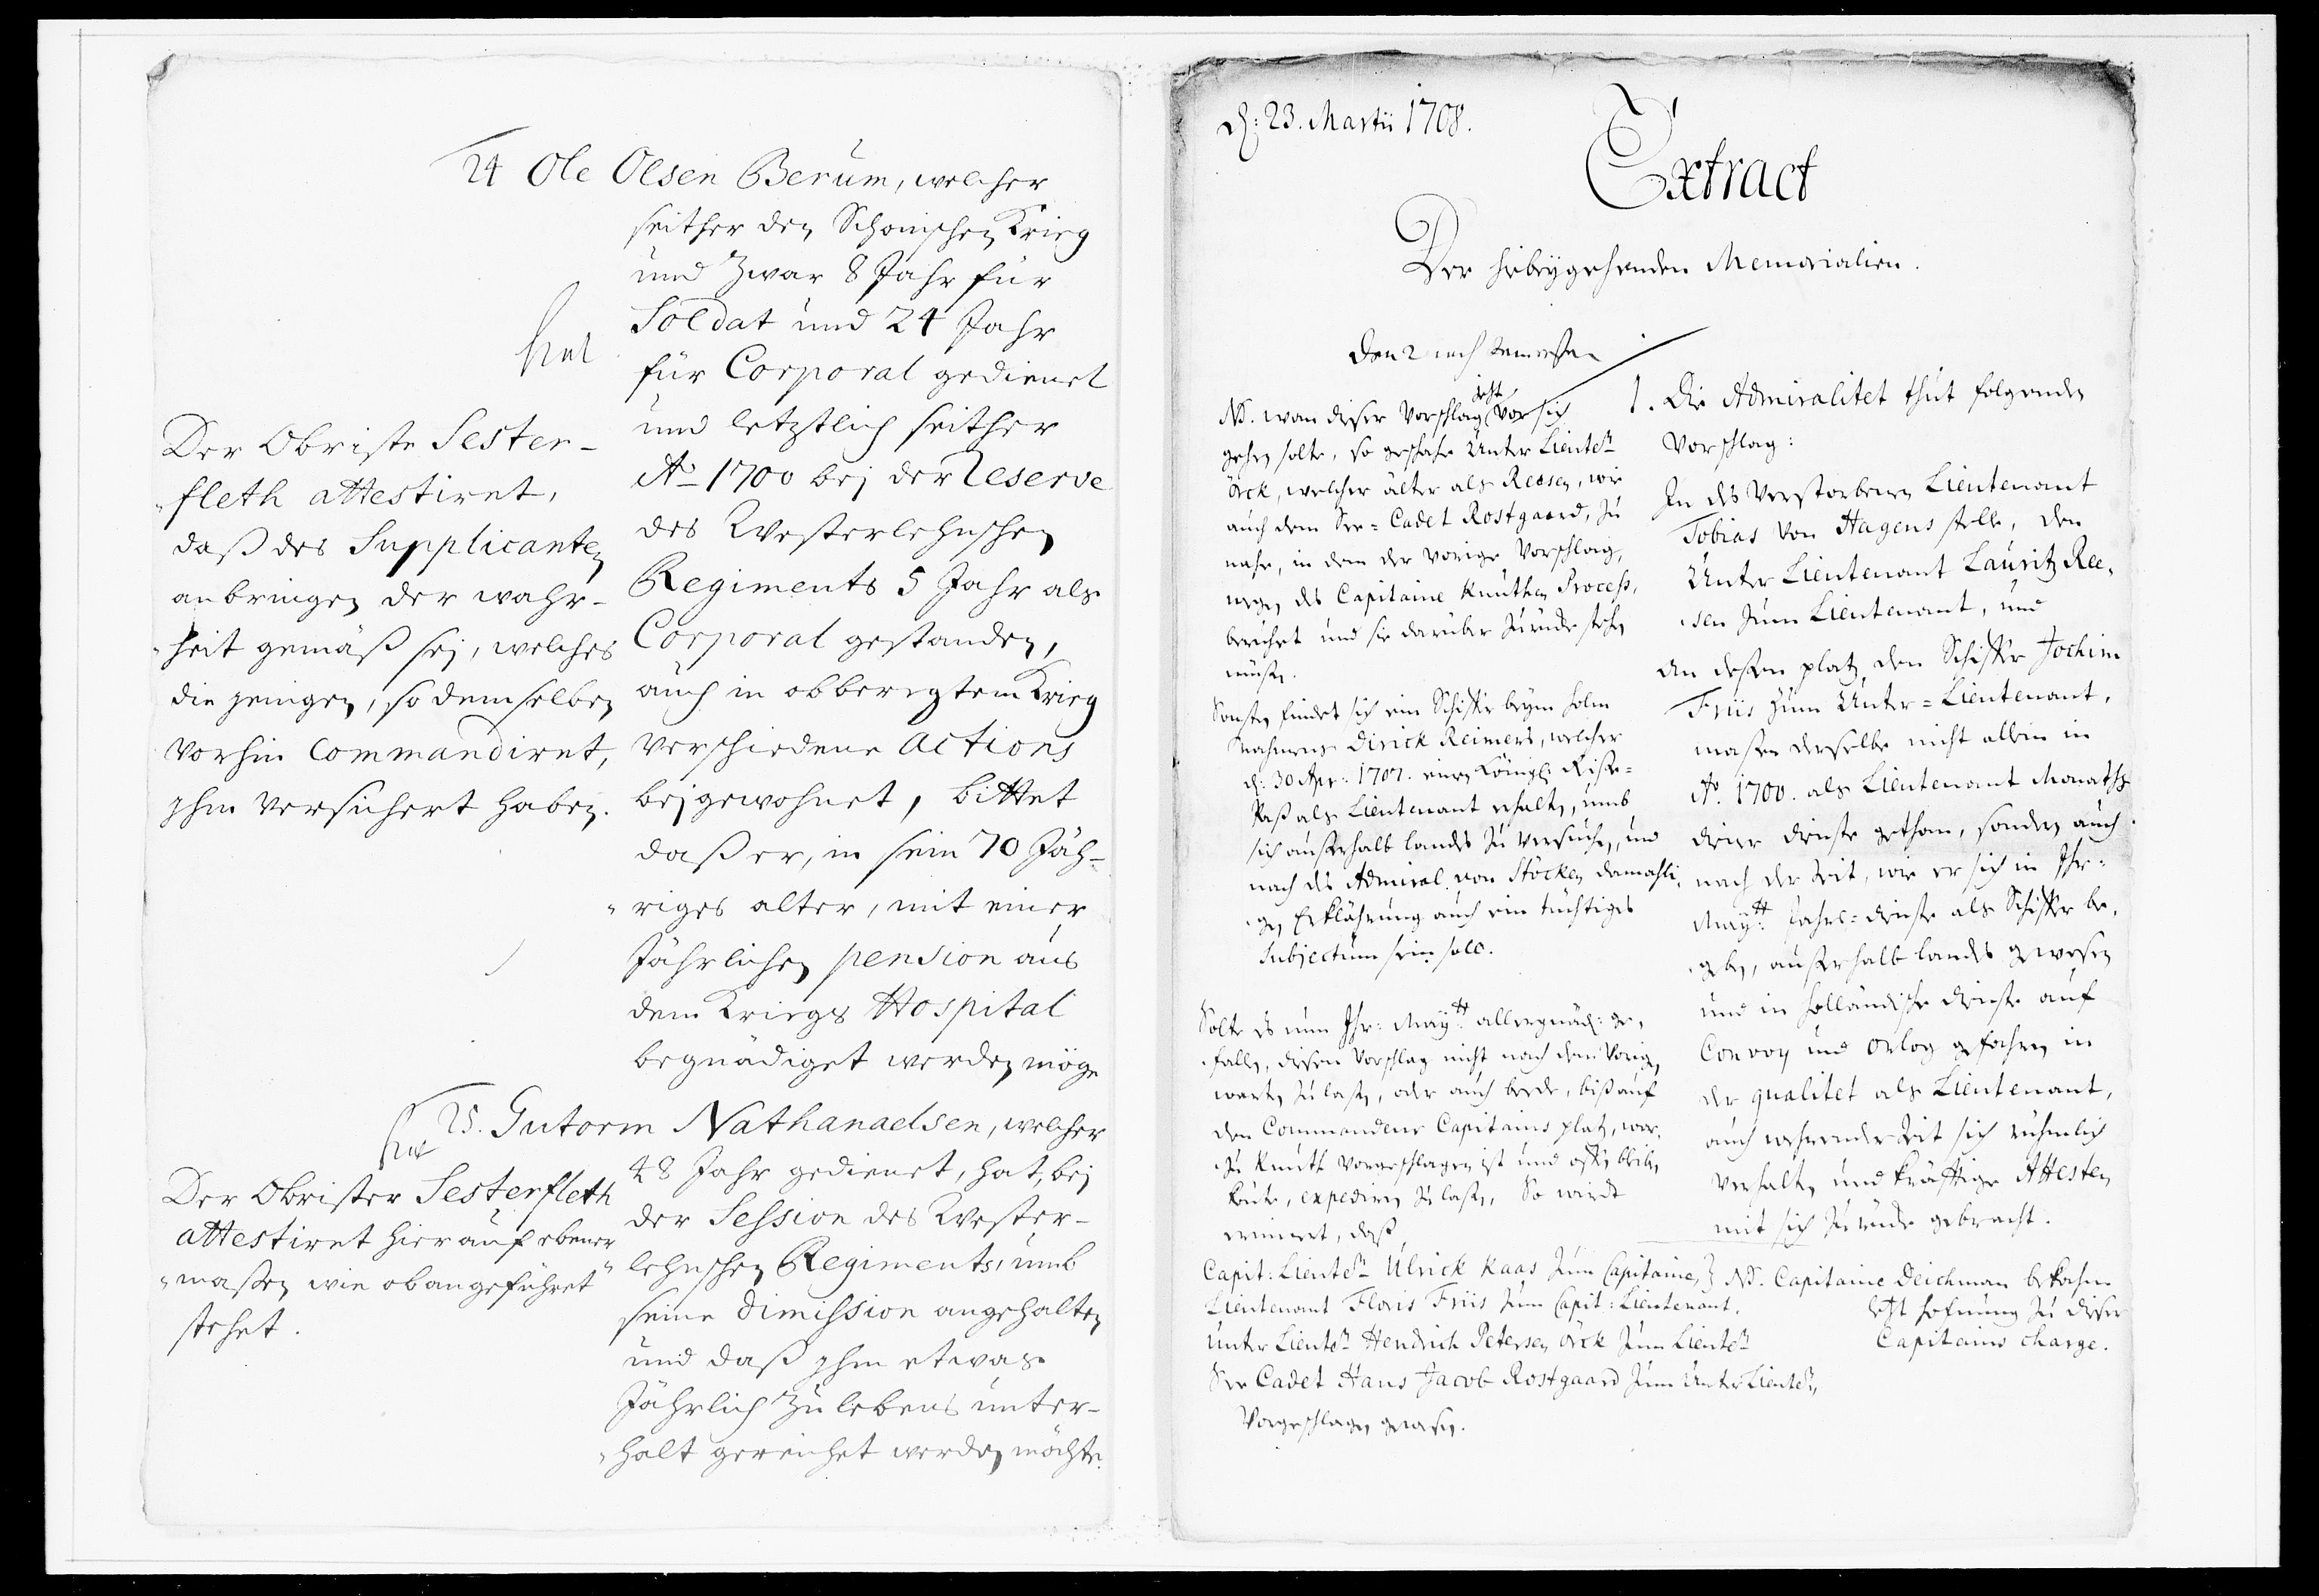 24 Ole Olsen Berum, welcher
seither den Schonischen Krieg
und zwar 8 Jahr für
Soldat und 24 Jahr
für Corporal gedienet
und letztlich seither
Ao 1700 bej der Reserve
des Westerlehnschen
Regiments 5 Jahr als
Corporal gestanden,
auch in obberegtem Krieg
verschiedene Actions
bejgewohnet, bittet
daß er, in sein 70 Jäh-
riges alter, mit einer
Jährlichen pension aus
dem Kriegs Hospital
begnädiget werden möge
Der Obriste Sester-
fleth attestiret,
daß des Supplicanten
anbringen der wahr-
heit gemäß sej, welches
die jenigen, so demselben
vorhin commandiret,
jhm versichert haben.
25. Gutorm Nathanaelsen, welcher
48 Jahr gedienet, hat, bej
der Session des Wester-
lehnschen Regiments, umb
seine Dimission angehalten
und daß jhm etwas
Jährlich zu lebens unter-
halt gereichet werden möchte.
Der Obrister Sesterfleth
attestiret hierauf ebener
maßen wie obangeführet
stehet.
d: 23. Martii 1708.
Extract
Der hiebeygehenden Memorialien.
1. Die Admiralitet thut folgenden
Vorschlag:
In des Verstorbenen Lieutenant
Tobias von Hagens stelle, den
Unter Lieutenant Lauritz Ree-
sen zum Lieutenant, und
An deßen platz den Schiffer Jochim
Friis zum Unter-Lieutenant,
maßen derselbe nicht allein in
Ao. 1700. als Lieutenant Monaths
diener dienste gethan, sondern auch
nach der Zeit, wie er sich in Ihr:
Maytt: Jahrs-dienste als Schiffer be-
geben, außerhalb landes gewesen
und in holländische dienste auf
Convoy und Orlog gefahren in
der qualitet als Lieutenant,
auch wehrender Zeit sich rühmlich
verhalten und kräfftige Attesten
mit sich zurück gebracht.
NB. wan dieser Vorschlag jetzt vor sich
gehen solte, so geschehe Unter Lieutent
Örck, welcher älter als Reesen, wie
auch dem See-Cadet Rostgaard, zu
nahe, in dem der vorige Vorschlag,
wegen des Capitaine Knuthen Process,
beruhet und sie darüber zurück stehen
müßen.
Sonsten findet sich ein Schiffer beym Holm
Nahmens Dirick Reimers, welcher
d: 30 Apr: 1707. einen Königl: Reise-
Paß als Lieutenant erhalten, umb
sich außerhalb landes zu versuchen, und
nach des Admiral von Stöcken damahli-
gen Erklährung auch ein tüchtiges
Subjectum sein soll.
Solte es nun Ihr: Maytt: allergnäd: ge-
fallen, diesen Vorschlag nicht nach dem vorigen
warten zu laßen, oder auch beede, biß auf
den Commandeur Capitains platz, wor-
zu Knuth vorgeschlagen ist und offen bleiben
könte, expediren zu laßen, So wirdt
erinnert, daß
Capit: Lieutent Ulrick Kaas zum Capitaine,
Lieutenant Floris Friis zum Capit: Lieutenant,
Unter Lieutent Hendrich Petersen Örck zum Lieutent
See Cadet Hans Jacob Rostgaard zum Unter Lieutent,
Vorgeschlagen gewesen.
NB. Capitaine Deichman bekahm
letzt hofnung zu dieser
Capitains charge.